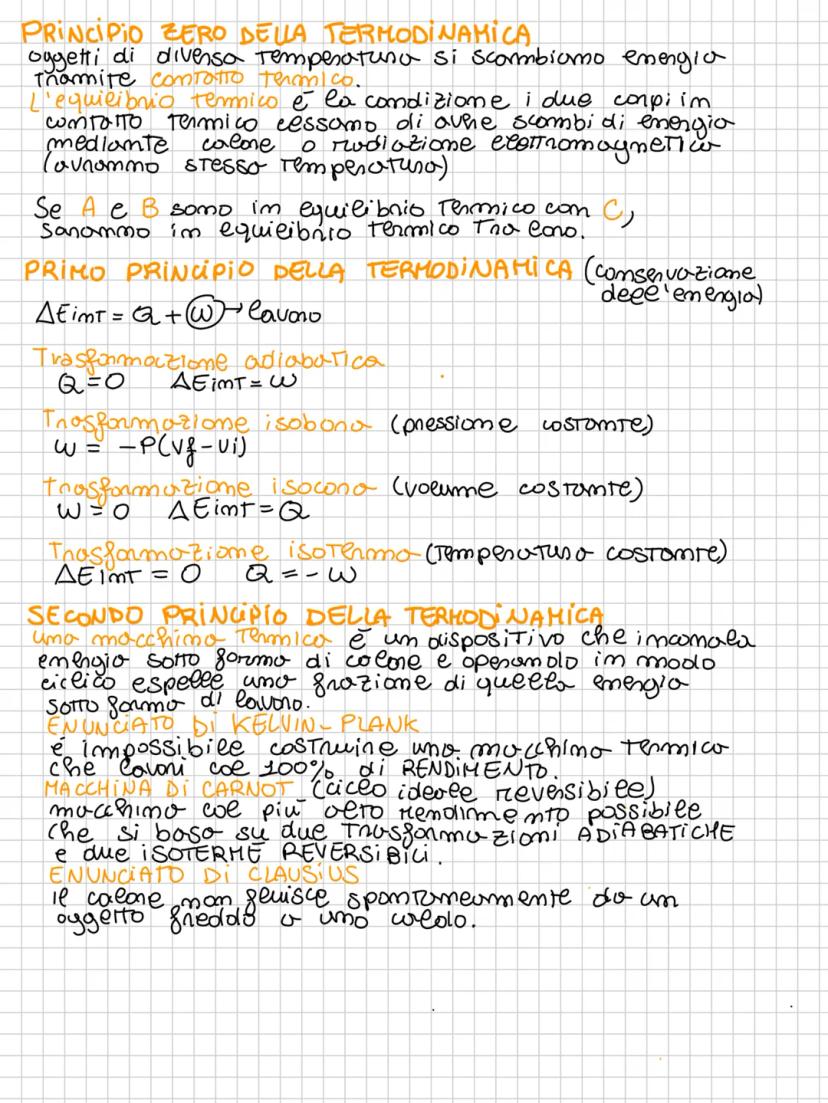 PRINCIPIO ZERO DELLA TERMODINAMICA
oggetti di diversa temperatura si scambiano energia
tramite contatto termico.
L'equilibrio termico é la condizione i due corpi in
contatto termico cessano di avere scambi di energia
mediante calore o radiazione elettromagnetica
(avranno stessa temperatura)
Se A e B sono in equilibrio termico con C,
saranno in equilibrio termico tra loro.
PRIMO PRINCIPIO DELLA TERMODINAMICA (conservazione
dell'energia)
ΔEint = Q + W → lavoro
Trasformazione adiabatica
Q = 0 ΔEint = W
Trasformazione isobara (pressione costante)
W = -P(Vf-Vi)
trasformazione isocora (volume costante)
W = 0 ΔEint = Q
Trasformazione isoterma (temperatura costante)
ΔEint = 0 Q = - W
SECONDO PRINCIPIO DELLA TERMODINAMICA
una macchina termica é un dispositivo che incamera
energia sotto forma di calore e operandolo in modo
ciclico espelle una frazione di quella energia
sotto forma di lavoro.
ENUNCIATO Di KELVIN-PLANK
é impossibile costruire una macchina termica
che lavori col 100% di RENDIMENTO.
MACCHINA Di CARNOT (ciclo ideale reversibile)
macchina col piú alto rendimento possibile
che si basa su due trasformazioni ADiABATICHE
e due iSOTERME REVERSiBiLi.
ENUNCIATO Di CLAUSiUS
il calore non fluisce spontaneamente da un
oggetto freddo a uno caldo.